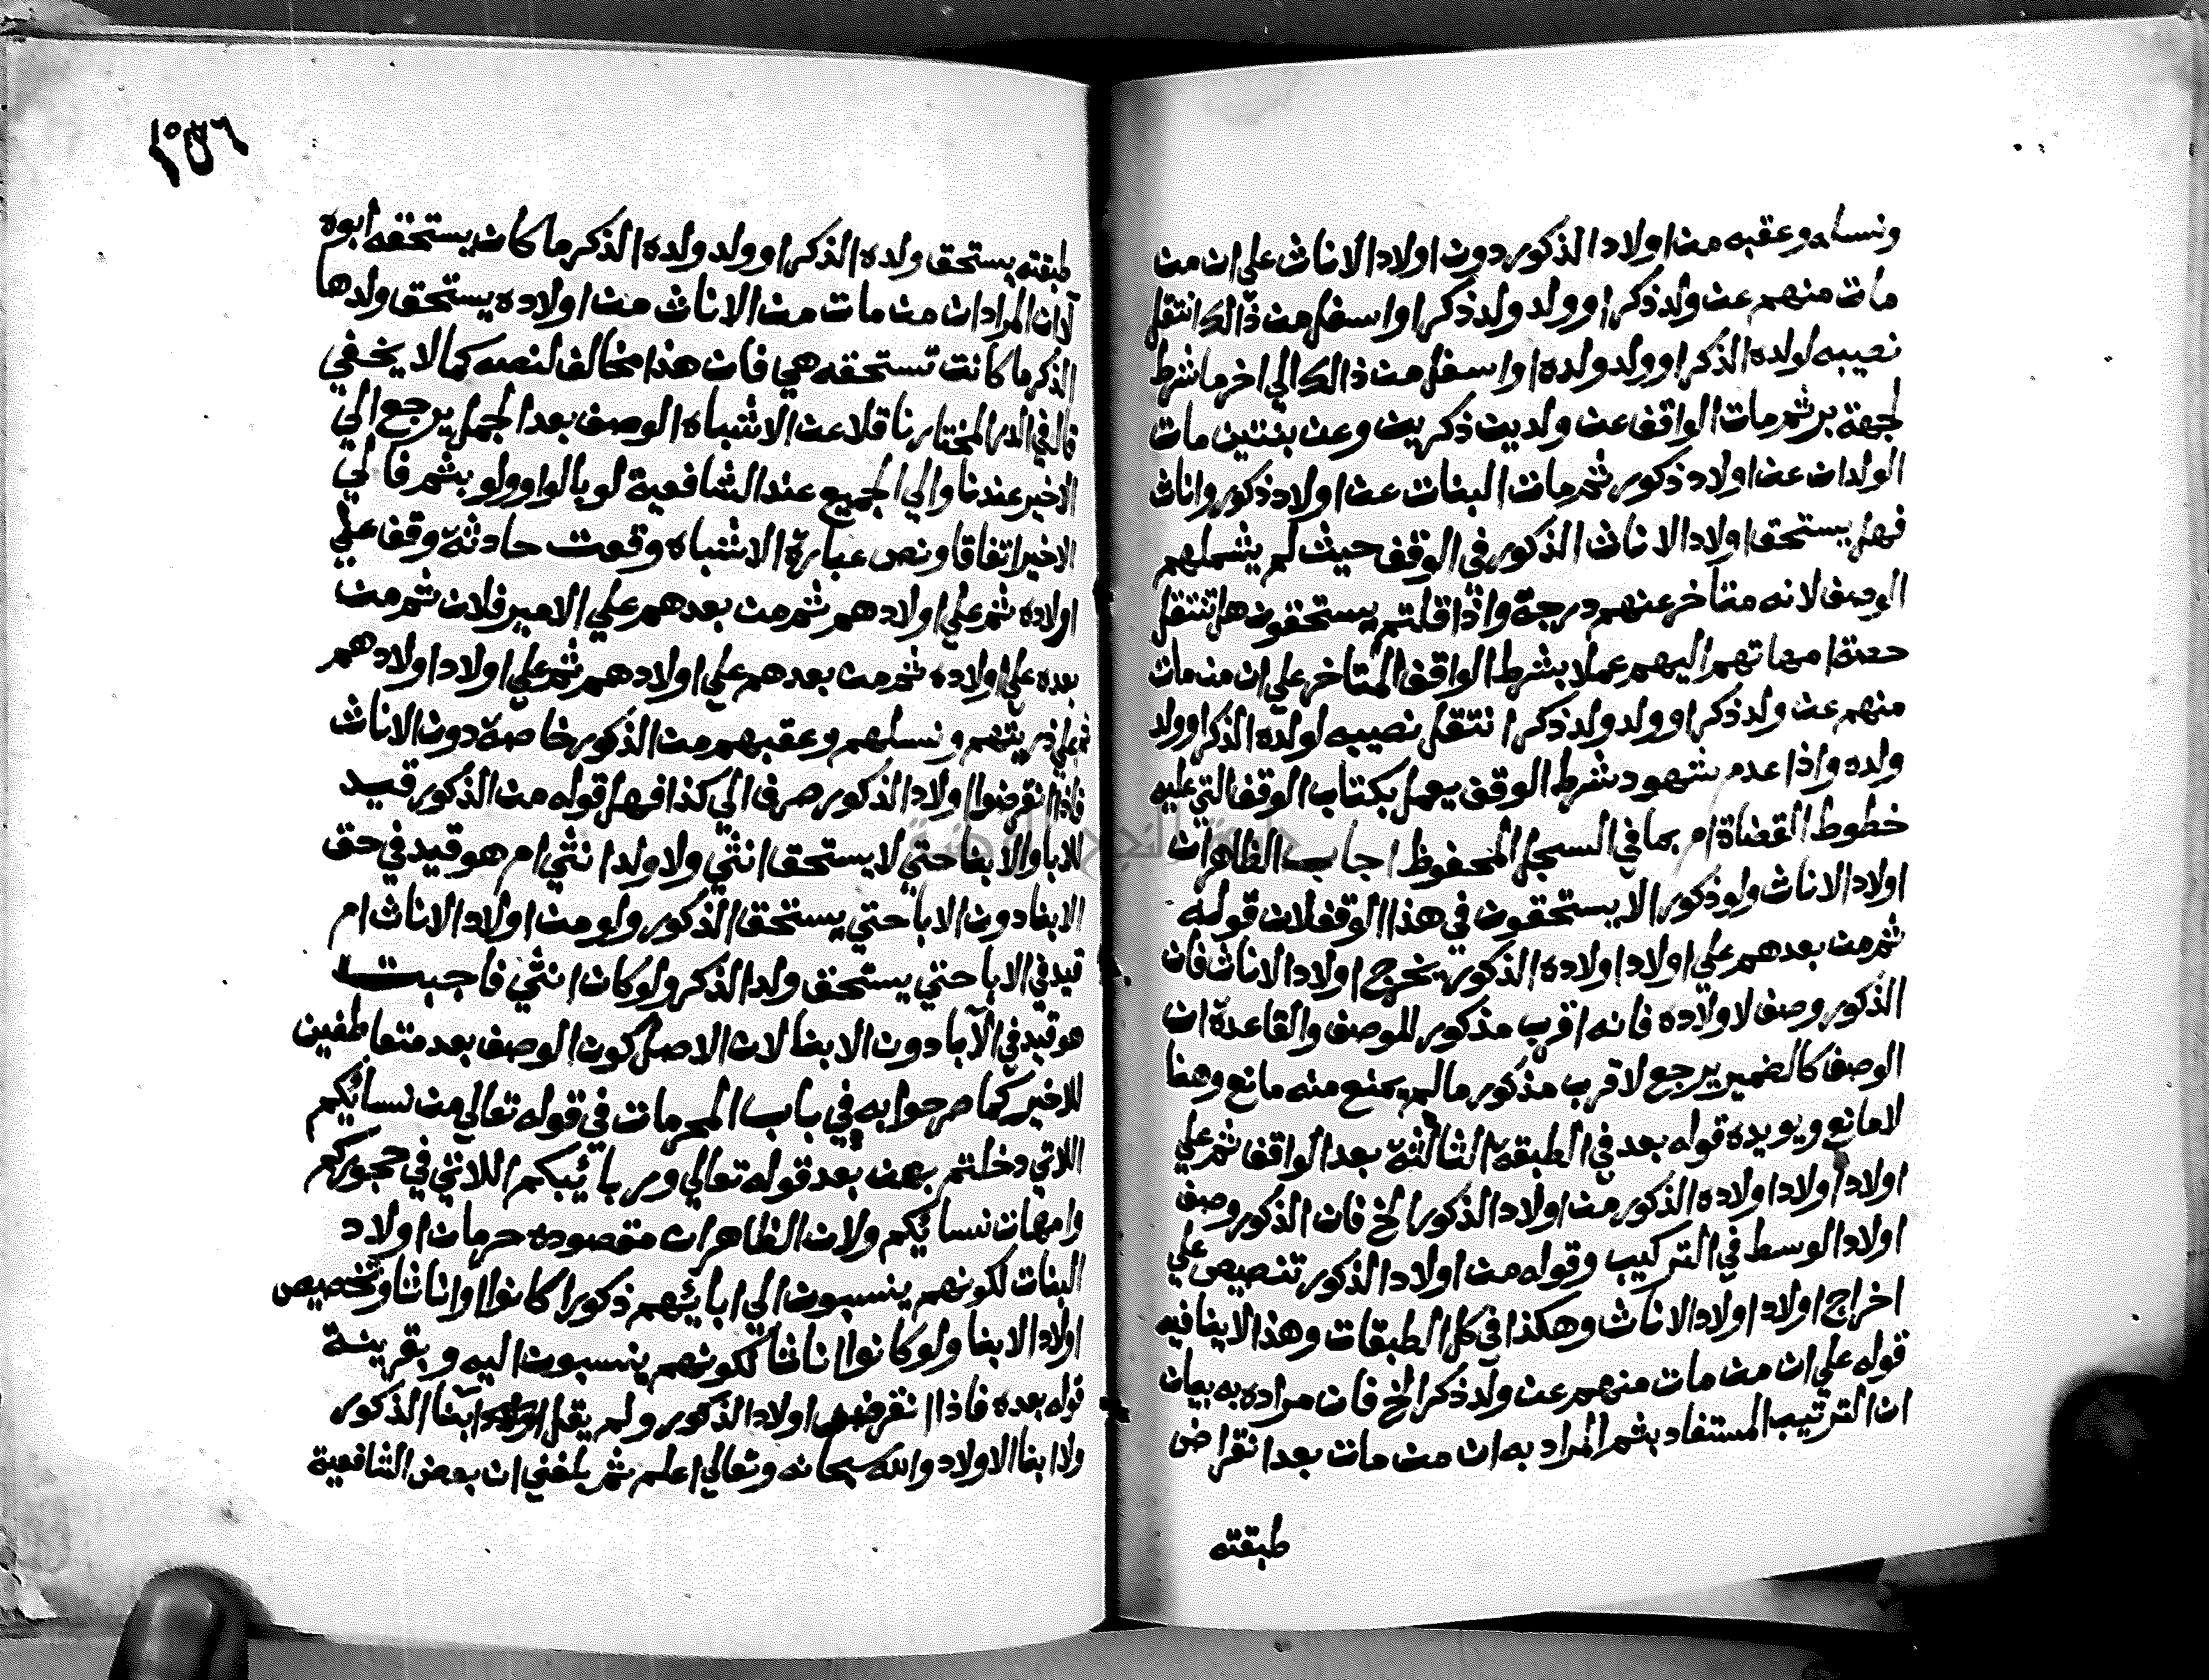 ونسله وعقبه من اولاد الذكور دون اولاد الاناث علي ان من
مات منهم عن ولد ذكر او ولد ولد ذكر او اسفل من ذالك انتقل
نصيبه لولده الذكر او ولد ولده او اسفل من ذالك الي اخر ما شرط
لجهة بر ثم مات الواقف عن ولدين ذكرين وعن بنتين مات
الولدان عن اولاد ذكور ثم مات البنات عن اولاد ذكور واناث
فهل يستحق اولاد الاناث الذكور في الوقف حيث لم يشملهم
الوصف لانه متأخر عنهم درجة واذا قلتم يستحقون هل تنتقل
حصة امهاتهم اليهم عملا بشرط الواقف المتاخر علي ان من مات
منهم عن ولد ذكر او ولد ولد ذكر انتقل نصيبه لولده الذكر او ولد
ولده واذا عدم شهود شرط الوقف يعمل بكتاب الوقف التي عليه
خطوط القضاة ام بما في السجل المحفوظ اجاب الظاهر ان
اولاد الاناث ولو ذكورا لا يستحقون في هذا الوقف لان قوله
ثم من بعدهم علي اولاد اولاده الذكور يخرج اولاد الاناث فان
الذكور وصف لاولاده فانه اقرب مذكور للوصف والقاعدة ان
الوصف كالضمير يرجع لاقرب مذكور ما لم يمنع منه مانع وهنا
لا مانع ويويده قوله بعد في الطبقة الثالثة بعد الواقف ثم علي
اولاد اولاد اولاده الذكور من اولاد الذكور الخ فان الذكور وصف
اولاد الوسط في التركيب وقوله من اولاد الذكور تنصيص علي
اخراج اولاد اولاد الاناث وهكذا في كل الطبقات وهذا لا ينافيه
قوله علي ان من مات منهم عن ولد ذكر الخ فان مراده به بيان
ان الترتيب المستفاد بثم المراد به ان من مات بعد انقراض
طبقته
طبقته يستحق ولده الذكر او ولد ولده الذكر ما كان يستحقه ابوه
لا ان المراد ان من مات من الاناث من اولاده يستحق ولدها
الذكر ما كانت تستحقه هي فان هذا مخالف لنصه كما لا يخفي
قال في الدر المختار ناقلا عن الاشباه الوصف بعد الجمل يرجع الي
الاخير عندنا والي الجميع عند الشافعية لو بالواو ولو بثم فالي
الاخير اتفاقا ونص عبارة الاشباه وقعت حادثة وقف علي
اولاده ثم علي اولادهم ثم من بعدهم علي الامير فلان ثم من
بعده علي اولاده ثم من بعدهم علي اولادهم ثم علي اولاد اولادهم
ثم علي ذريتهم ونسلهم وعقبهم من الذكور خاصة دون الاناث
فاذا انقرضوا اولاد الذكور صرف الي كذا فهل قوله من الذكور قيد
للابا والابنا حتي لا يستحق انثي ولا ولد انثي ام هو قيد في حق
الابنا دون الابا حتي يستحق الذكور ولو من اولاد الاناث ام
قيد في الابا حتي يستحق ولد الذكر ولو كان انثي فاجبت
هو قيد في الآبا دون الابنا لان الاصل كون الوصف بعد متعاطفين
للاخير كما صرحوا به في باب المحرمات في قوله تعالي من نسائكم
اللاتي دخلتم بهن بعد قوله تعالي وربائبكم اللاتي في حجوركم
وامهات نسائكم ولان الظاهر ان مقصوده حرمان اولاد
البنات لكونهم ينسبون الي ابائهم ذكورا كانوا او اناثا وتخصيص
اولاد الابنا ولو كانوا اناثا لكونهم ينسبون اليه وبقرينة
قوله بعده فاذا انقرض اولاد الذكور ولم يقل ابنا الذكور
ولا ابنا الاولاد والله سبحانه وتعالي اعلم ثم بلغني ان بعض الشافعية